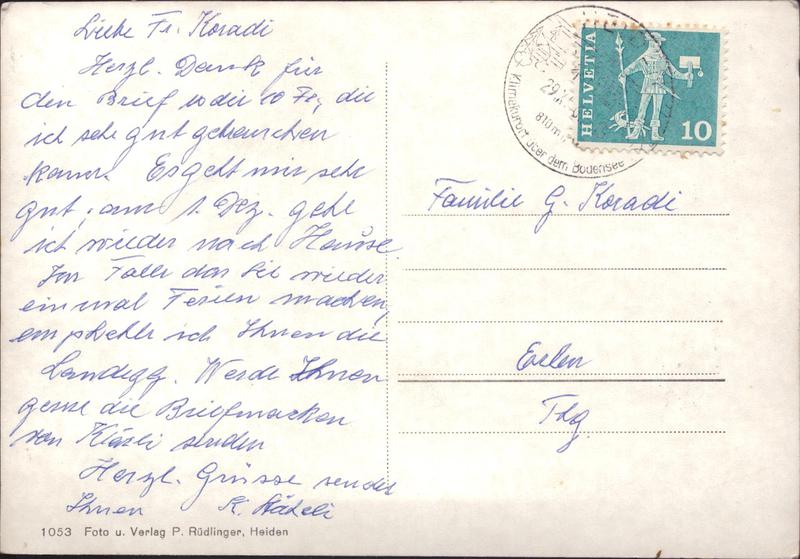 Liebe Fr. Koradi
Herzl. Dank für
den Brief u die 10 Fr, die
ich sehr gut gebrauchen
kann. Es geht mir sehr
gut, am 1. Dez. gehe
ich wieder nach Hause.
Im Falle das Sie wieder
einmal Ferien machen,
empfehle ich Ihnen die
Landegg. Werde Ihnen
gerne die Briefmarken
von senden
Herzl. Grüsse sendet
Ihnen K.
1053 Foto u. Verlag P. Rüdlinger, Heiden
29.
810 m
Klimakurort über dem Bodensee
HELVETIA
10
Familie G. Koradi
Erlen
Thg.